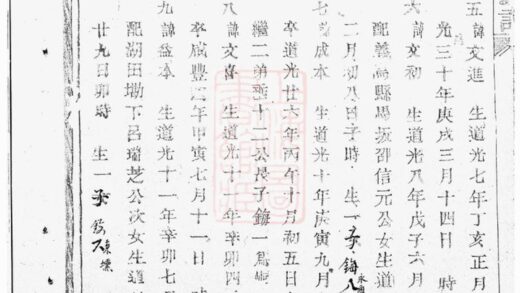 五 諱文進 生道光七年丁亥正月
光三十年庚戌三月十四日 時
六 諱文初 生道光八年戊子六月
配義烏縣馬坂邵信元公女生道
二月初八日子時 生一子 鋂八
七 諱成本 生道光十年庚寅九月
卒道光廿六年丙午十月初五日
繼二弟 十二公長子鋂一爲
八 諱文喜 生道光十一年辛卯四
卒咸豐 年甲寅七月十一日 時
九 諱益本 生道光十一年辛卯七
配湖田 下呂瑞芝公次女生道
廿九日卯時 生一子